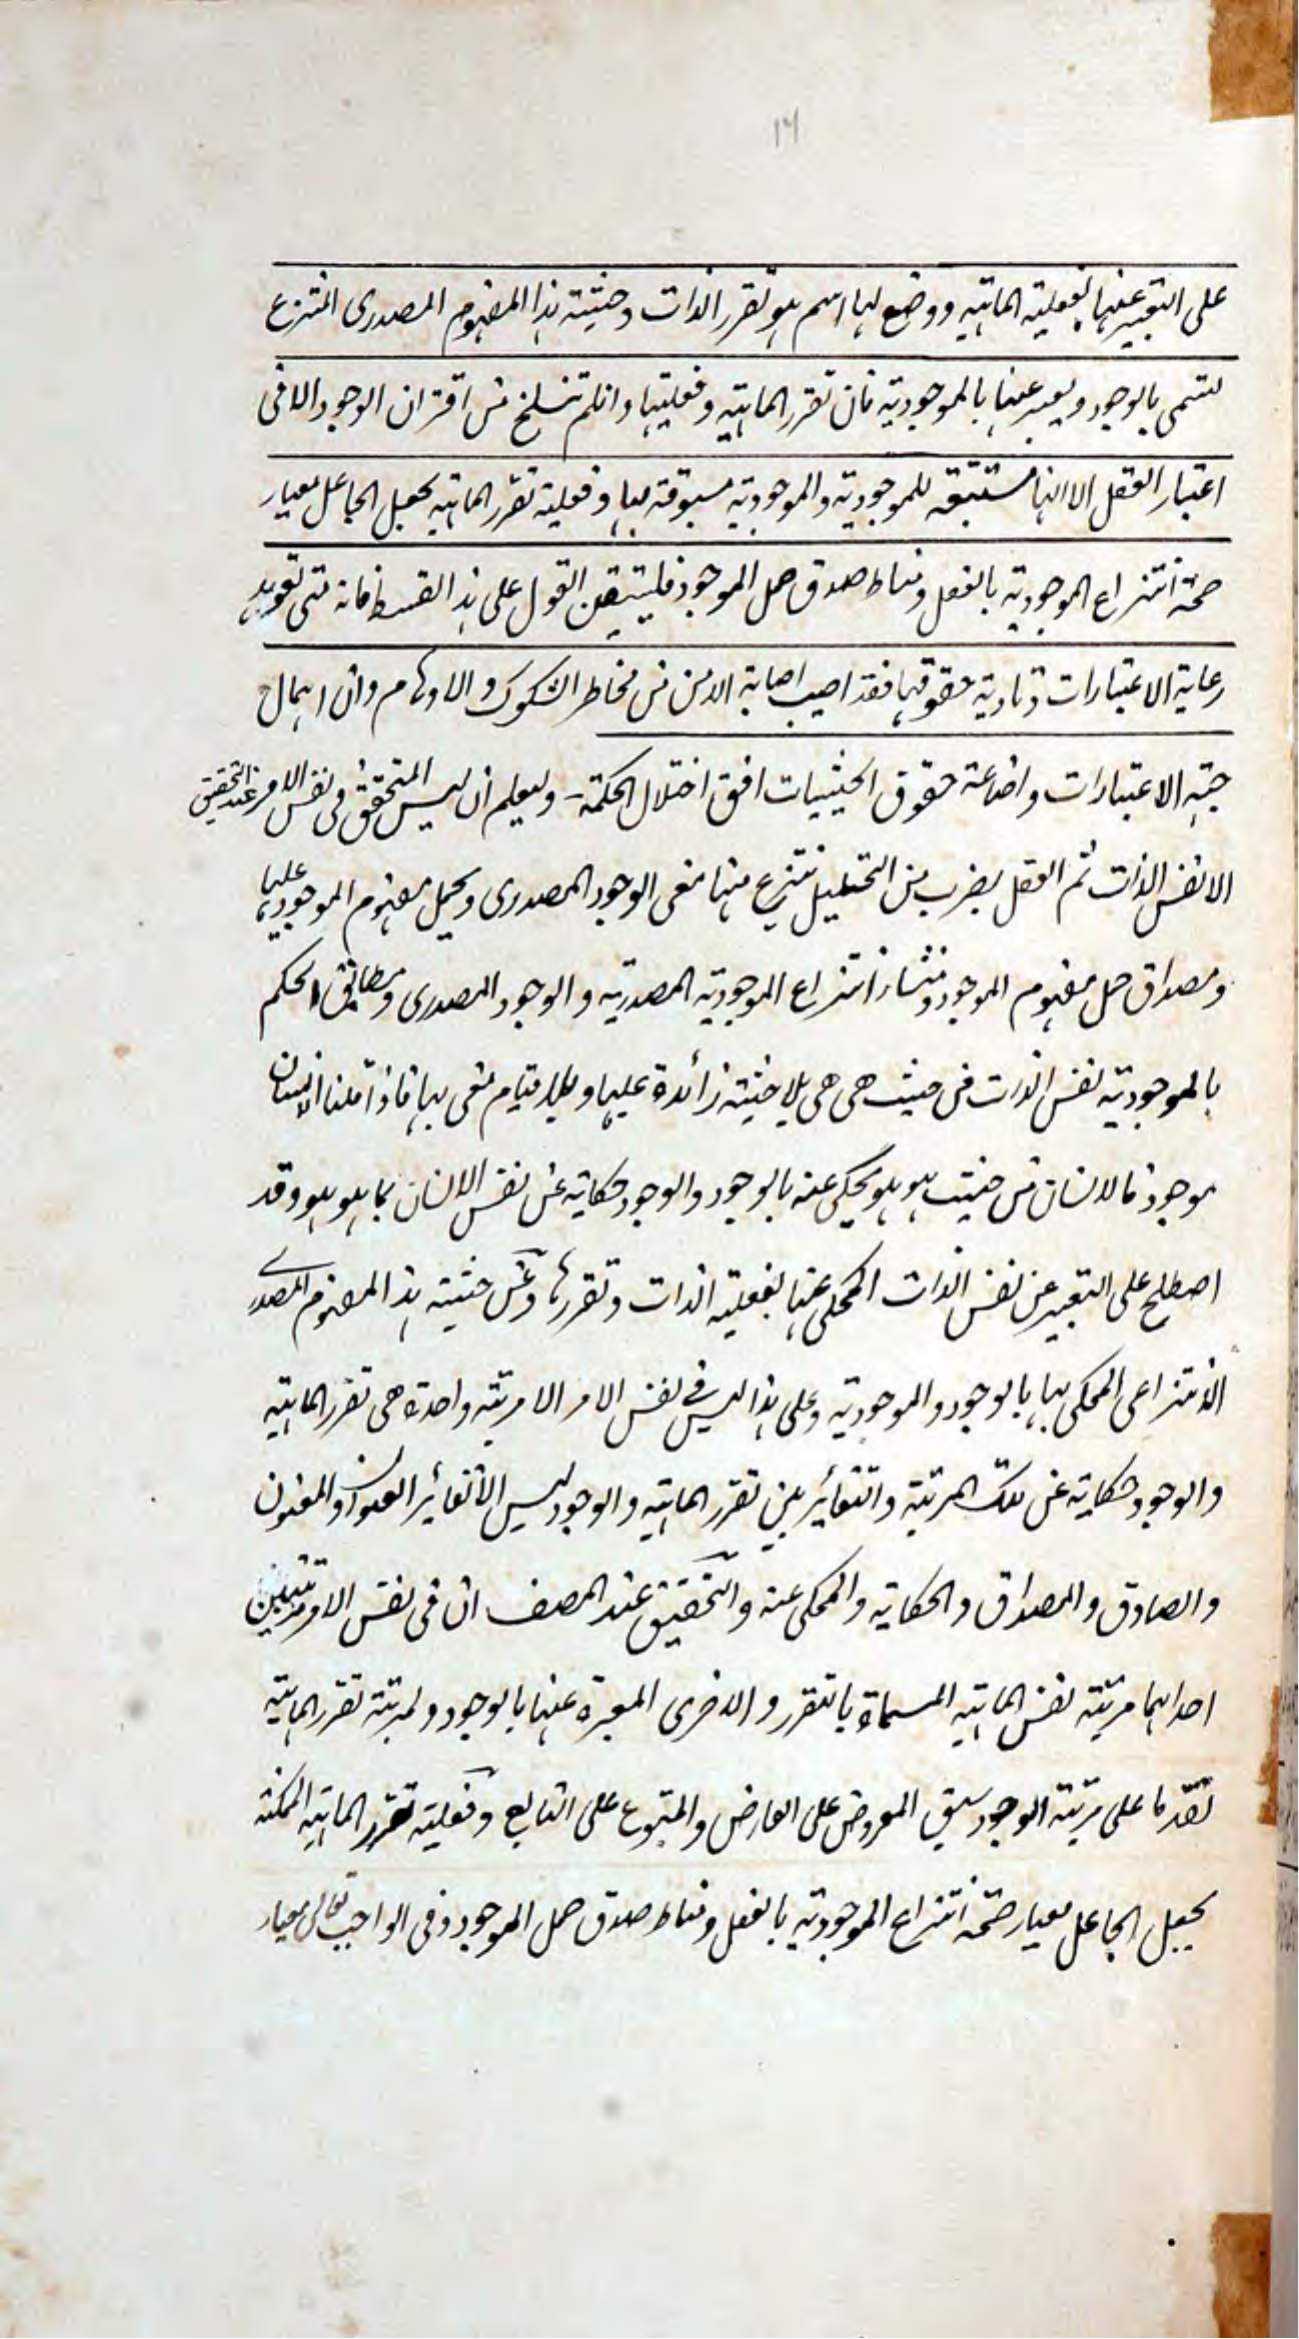 ١٦
على التعبير عنها بفعلية الماهية ووضع لها اسم هو تقرر الذات وحيثية هذا المفهوم المصدرى المنتزع
تسمى بالوجود ويعبر عنها بالموجودية فان تقرر الماهية وفعليتها وان لم تنسلخ من اقتران الوجود الا فى
اعتبار العقل الا انها مستتبعة للموجودية والموجودية مسبوقة بها وفعلية تقرر الماهية بجعل الجاعل معيار
صحة انتزاع الموجودية بالفعل ومناط صدق حمل الموجود فليتيقن القول على هذا القسط فانه متى
رعاية الاعتبارات وتادية حقوقها فقد اصيب اصابة الامن من مخاطر الشكوك والاوهام وان اهمال
جهة الاعتبارات واضاعة حقوق الحيثيات افق اختلال الحكمة - وليعلم ان ليس المتحقق فى نفس الامر عند التحقيق
الا نفس الذات ثم العقل بضرب من التحليل ينتزع منها معنى الوجود المصدرى ويحمل مفهوم الموجود عليها
ومصداق حمل مفهوم الموجود ومنشأ انتزاع الموجودية المصدرية والوجود المصدرى ومطابق الحكم
بالموجودية نفس الذات من حيث هى هى بلا حيثية زائدة عليها وبلا قيام معنى بها فاذا قلنا الانسان
موجود فالانسان من حيث هو هو محكى عنه بالوجود والوجود حكاية عن نفس الانسان بما هو هو وقد
اصطلح على التعبير عن نفس الذات المحكى عنها بفعلية الذات وتقررها وعن حيثية هذا المفهوم المصدرے
الانتزاعى المحكى بها بالوجود والموجودية وعلى هذا ليس فے نفس الامر الا مرتبة واحدة هى تقرر الماهية
والوجود حكاية عن تلك المرتبة والتغائر بين تقرر الماهية والوجود ليس الا تغائر العنوان والمعنون
والصادق والمصداق والحكاية والمحكى عنه والتحقيق عند المصنف ان فى نفس الامر مرتبتين
احداهما مرتبة نفس الماهية المسماة بالتقرر والاخرى المعبرة عنها بالوجود ولمرتبة تقرر الماهية
تقدما على مرتبة الوجود سبق المعروض على العارض والمتبوع على التابع وفعلية تقرر الماهية الممكنة
بجعل الجاعل معيار صحة انتزاع الموجودية بالفعل ومناط صدق حمل الموجود وفى الواجب تعالى معيار